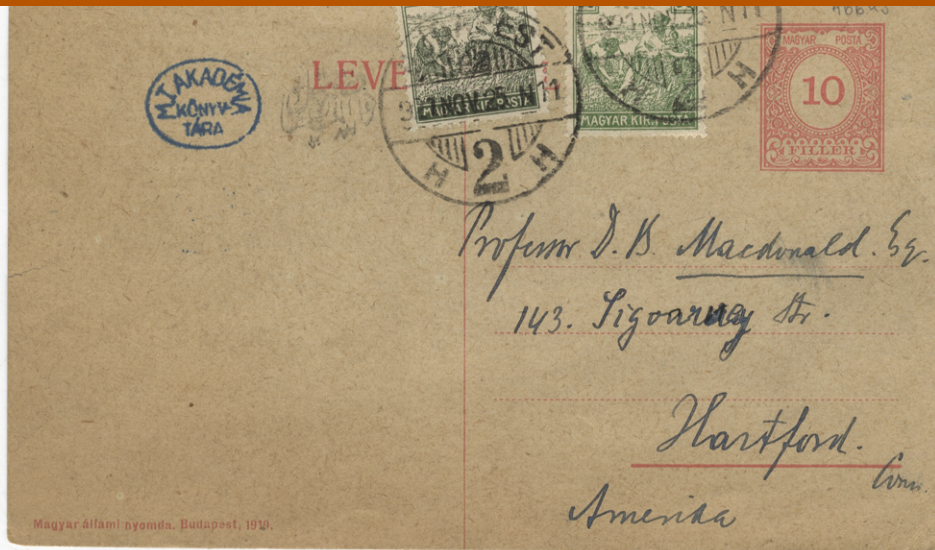 M. T. AKADÉMIA
KÖNYV-
TÁRA
LEVE
EST
NOV. 25. N 11
H 2 H
MAGYAR KIR. POSTA
MAGYAR POSTA
10
FILLÉR
Professor D. B. Macdonald. Esq.
143. Sigourney Str.
Hartford.
Conn.
Amerika
Magyar állami nyomda. Budapest, 1919.